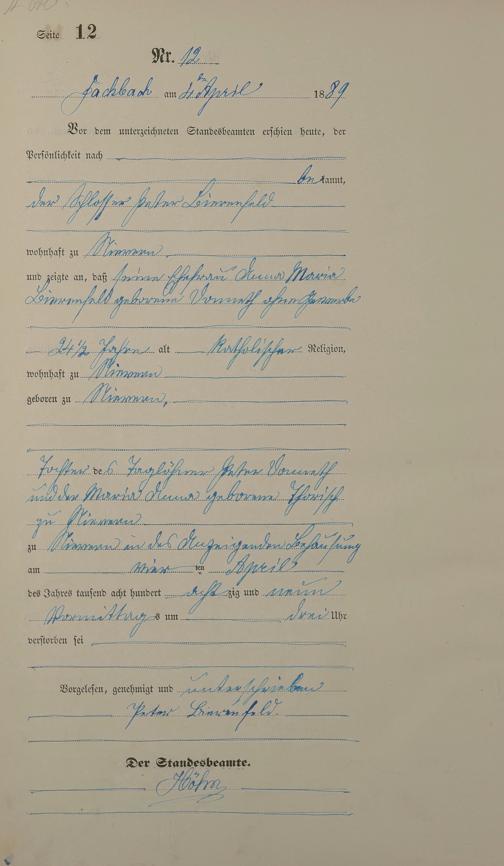 Seite 12
Nr. 12
Fachbach am 4ten April 1889
Vor dem unterzeichneten Standesbeamten erschien heute, der
Persönlichkeit nach
bekannt,
der Schlosser Peter Bierenfeld
wohnhaft zu Nievern
und zeigte an, daß seine Ehefrau Anna Maria
Bierenfeld geborene Vonneth ohne Gewerbe
24 1/2 Jahre alt katholischer Religion,
wohnhaft zu Nievern
geboren zu Nievern,
Tochter des Taglöhner Peter Vonneth
und der Maria Anna geborene
zu Nievern
zu Nievern in des Anzeigenden Behausung
am vier ten April
des Jahres tausend acht hundert acht zig und neun
Vormittags um drei Uhr
verstorben sei
Vorgelesen, genehmigt und unterschrieben
Peter Bierenfeld.
Der Standesbeamte.